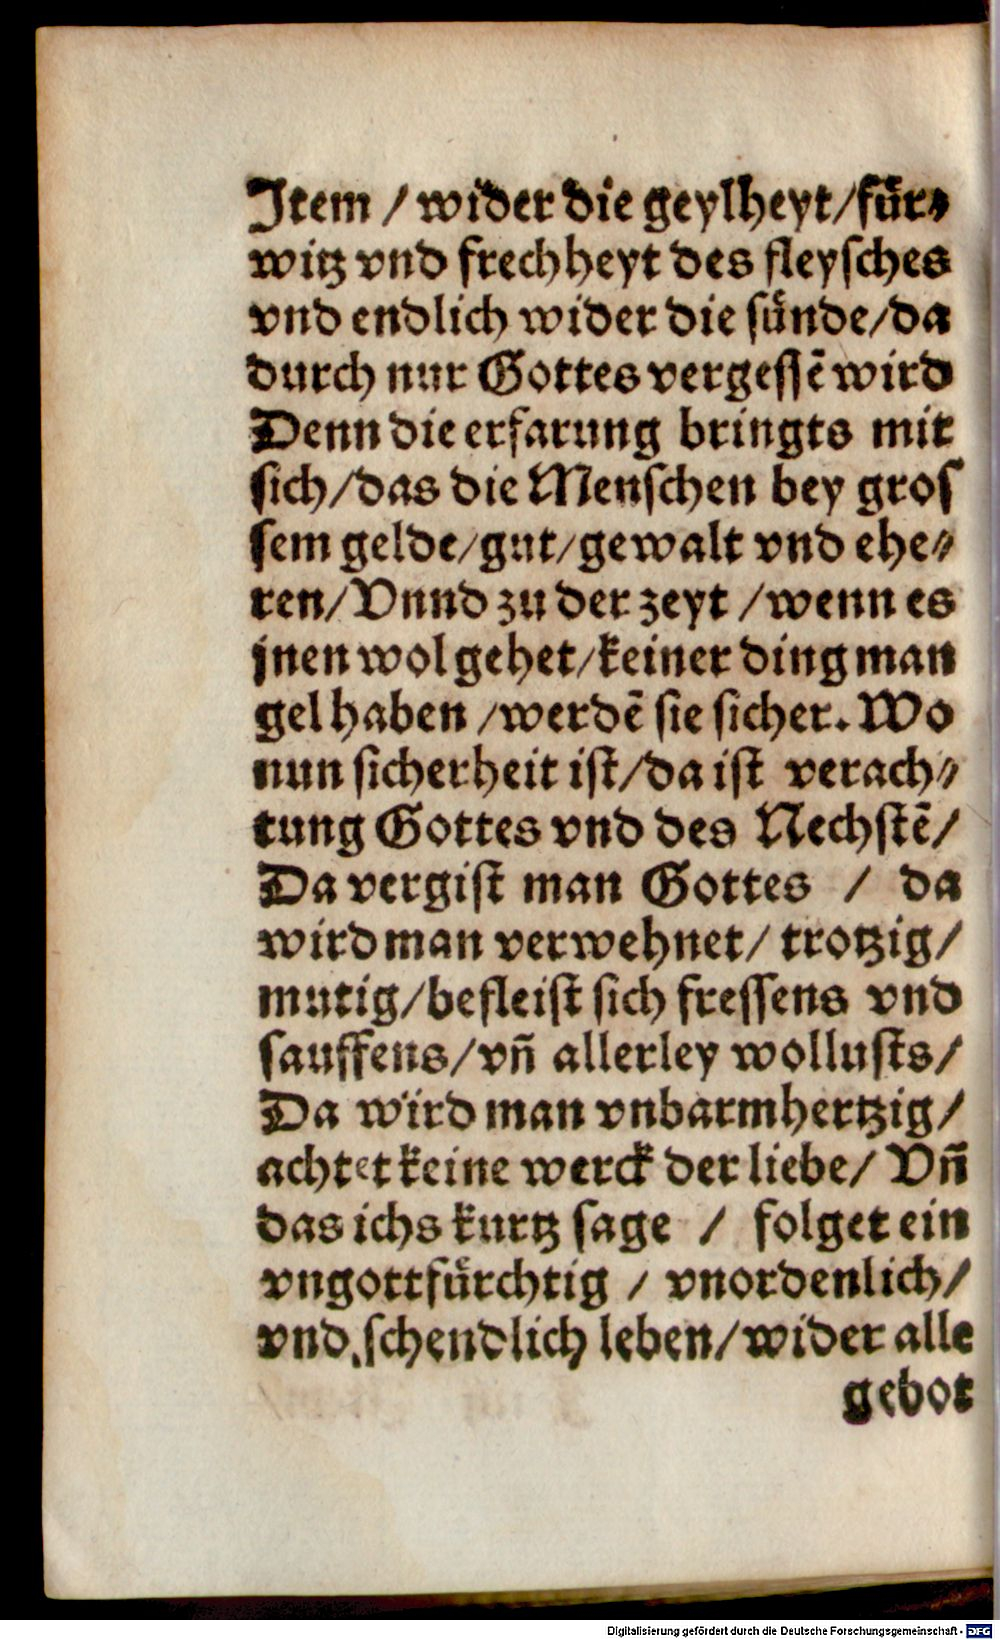 Item / wider die geylheyt/fuͤr⸗
witz vnd frechheyt des fleysches
vnd endlich wider die suͤnde/da
durch nur Gottes vergessē wird
Denn die erfarung bringts mit
sich/das die Menschen bey gros
sem gelde/gut/gewalt vnd ehe⸗
ren/Vnnd zu der zeyt /wenn es
jnen wol gehet/keiner ding man
gel haben /werdē sie sicher. Wo
nun sicherheit ist/da ist verach⸗
tung Gottes vnd des Nechstē/
Da vergist man Gottes / da
wird man verwehnet/ trotzig/
mutig/befleist sich fressens vnd
sauffens/vn̄ allerley wollusts/
Da wird man vnbarmhertzig/
achtet keine werck der liebe/ Vn̄
das ichs kurtz sage / folget ein
vngottfuͤrchtig / vnordenlich/
vnd schendlich leben/wider alle
gebot
Digitalisierung gefördert durch die Deutsche Forschungsgemeinschaft - DFG